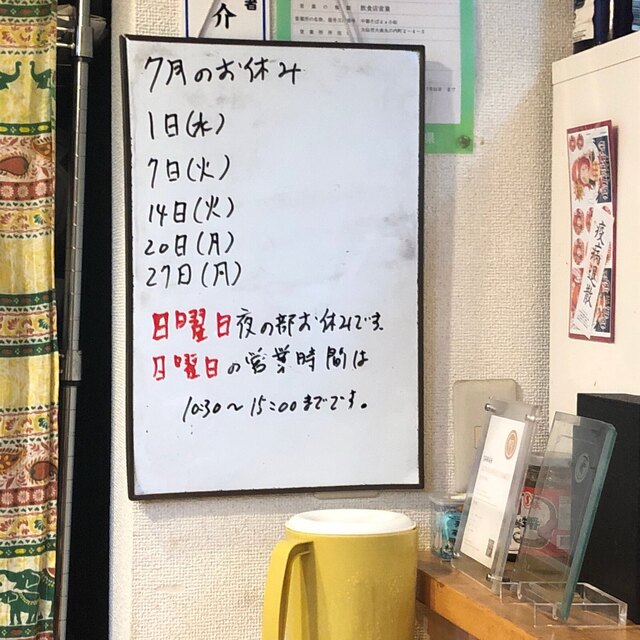 者
介
飲食店営業
7月のお休み
1日(水)
7日(火)
14日(火)
20日(月)
27日(月)
日曜日夜の部お休みです
日曜日の営業時間は
10:30〜15:00までです。
疫病退散